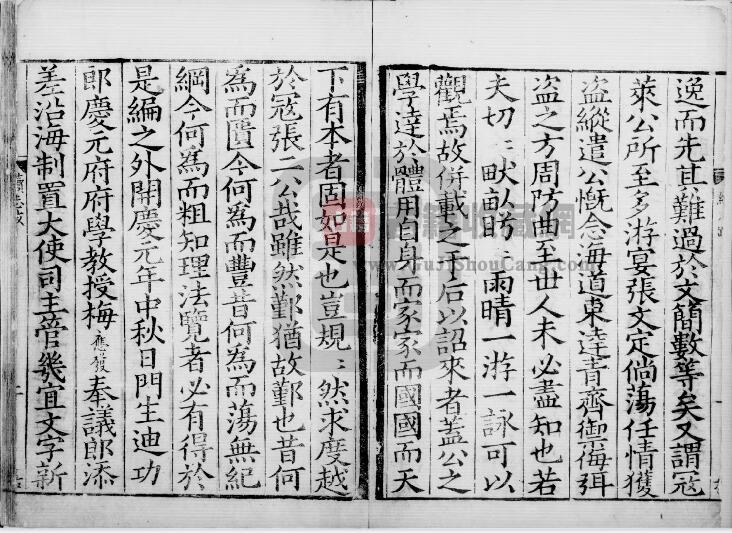 逸而先其難過於文簡數等矣又謂冦
萊公所至多游宴張文定倘蕩任情獲
盗縱遣公慨念海道東達青齊御侮弭
盗之方周防曲至世人未必盡知也若
夫切〻畎畆時〻雨晴一游一詠可以
觀焉故併載之于后以詔來者蓋公之
學達於體用自身而家家而國國而天
下有本者固如是也豈規〻然求度越
於冦張二公哉雖然鄞猶故鄞也昔何
為而匱今何為而豐昔何為而蕩無紀
綱今何為而粗知理法覽者必有得於
是編之外開慶元年中秋日門生迪功
郎慶元府府學教授梅應發奉議郎添
差沿海制置大使司主管幾宜文字新
籍收藏網
www.GuJiShouCang.com